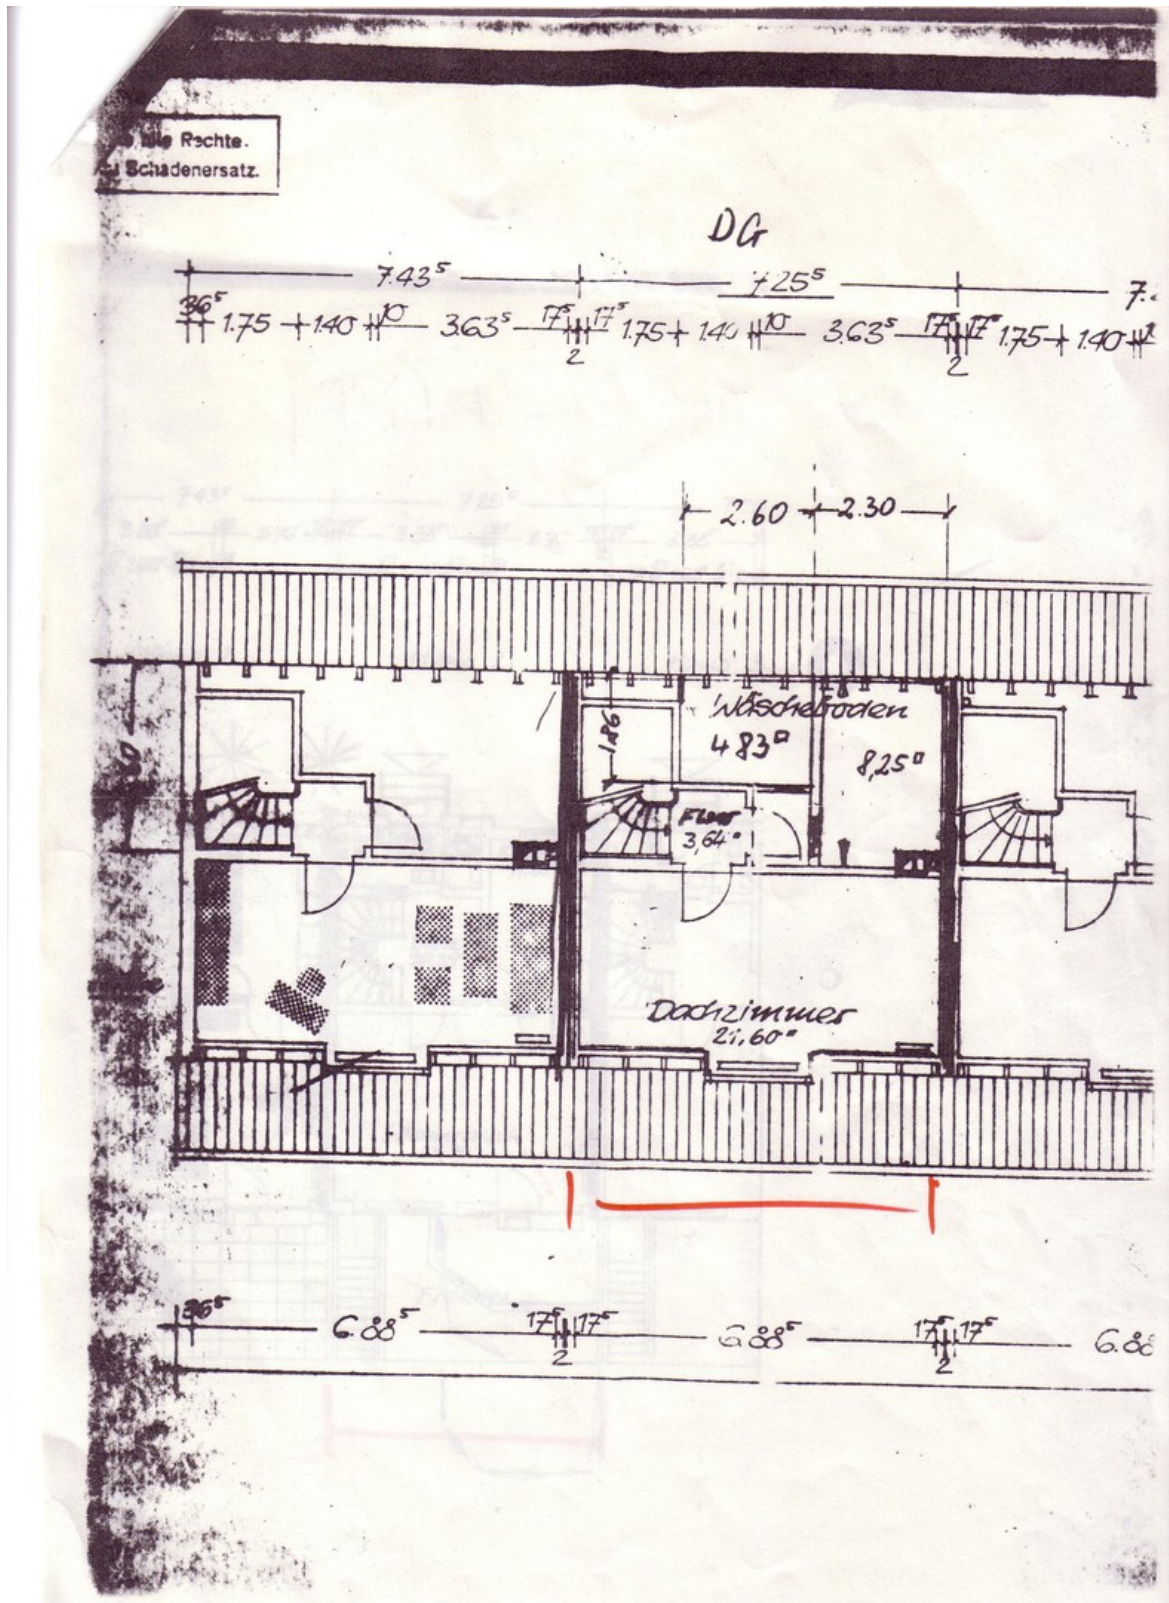 alle Rechte.
Schadenersatz.
DG
7.43⁵ 7.25⁵
36⁵ 1.75 1.40 10 3.63⁵ 17⁵ 17⁵ 1.75 1.40 10 3.63⁵ 17⁵ 17⁵ 1.75 1.40
2 2
2.60 2.30
1.86
Wäscheboden
4.83
8,25
Flur
3,64
Dachzimmer
21,60
36⁵ 6.88⁵ 17⁵ 17⁵ 6.88⁵ 17⁵ 17⁵ 6.88
2 2